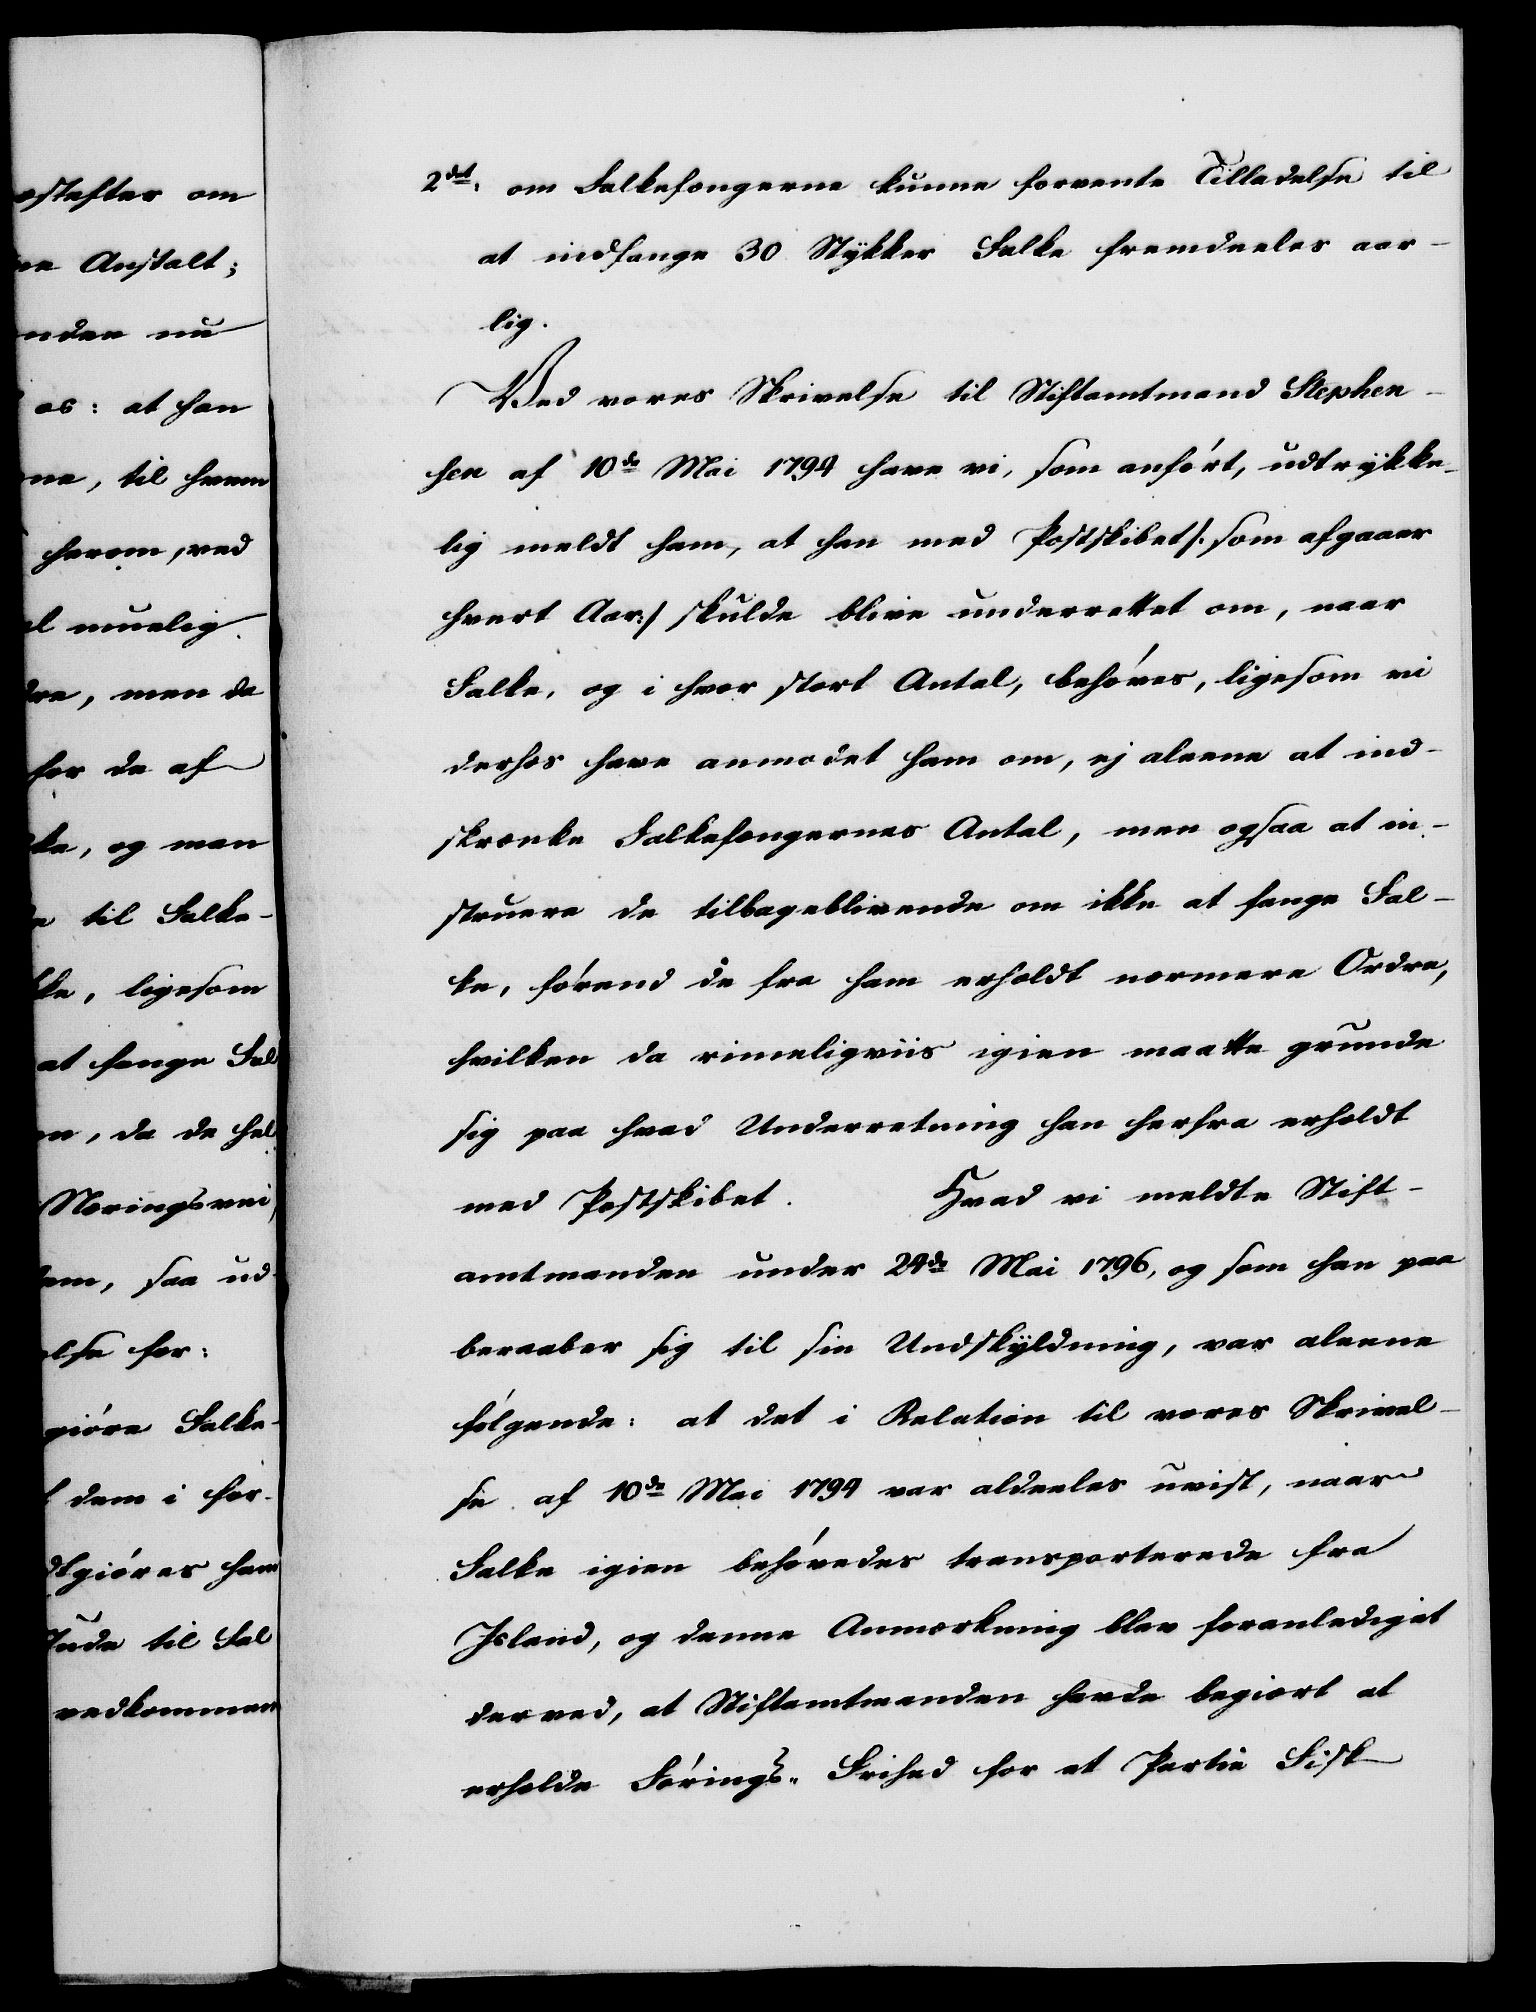 ostefter om
ne Anstalt;
nden nu
os: at han
ne, til hvem
herom, ved
el muelig
dre, men da
for de af
ke, og man
til Falke-
ke, ligesom
at fange Fal
en, da de hel
Næringsvei
dem, saa ud-
else for:
giøre Falke-
dem i for-
dgiøres ham
til Fal
vedkommen
2det: om Falkefangerne kunne forvente Tilladelse til
at indfange 30 Stÿkker Falke fremdeeles aar-
lig.
Ved vores Skrivelse til Stiftamtmand Stephen-
sen af 10de Mai 1794 have vi, som anført, udtrÿkke-
lig meldt ham, at han med Postskibet /: som afgaaer
hvert Aar :/ skulde blive underrettet om, naar
Falke, og i hvor stort Antal, behøves, ligesom vi
derhos have anmodet ham om, ej aleene at ind-
skrænke Falkefangernes Antal, men ogsaa at in-
struere de tilbageblivende om ikke at fange Fal-
ke, førend de fra ham erholdt nærmere Ordre,
hvilken da rimeligviis igien maatte grunde
sig paa hvad Underretning han herfra erholdt
med Postskibet. Hvad vi meldte Stift-
amtmanden under 24de Mai 1796, og som han paa
beraaber sig til sin Undskÿldning, var aleene
følgende: at det i Relation til vores Skrivel-
se af 10de Mai 1794 var aldeeles uvist, naar
Falke igien behøvedes transporterede fra
Island, og denne Anmærkning blev foranlediget
derved, at Stiftamtmanden havde begiært at
erholde Førings-Frihed for et Partie Fisk